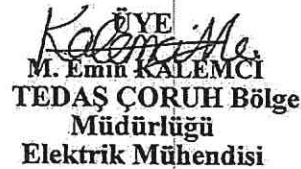 ÜYE
M. Emin KALEMCİ
TEDAŞ ÇORUH Bölge
Müdürlüğü
Elektrik Mühendisi